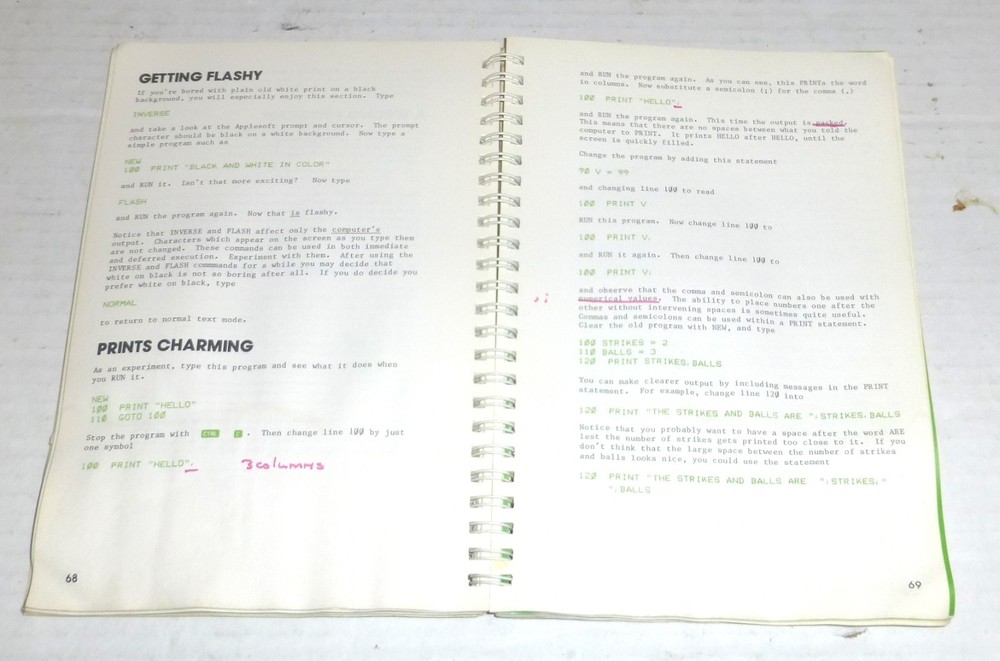 GETTING FLASHY
If you're bored with plain old white print on a black
background, you will especially enjoy this section. Type
INVERSE
and take a look at the Applesoft prompt and cursor. The prompt
character should be black on a white background. Now type a
simple program such as
NEW
100 PRINT "BLACK AND WHITE IN COLOR"
and RUN it. Isn't that more exciting? Now type
FLASH
and RUN the program again. Now that is flashy.
Notice that INVERSE and FLASH affect only the computer's
output. Characters which appear on the screen as you type them
are not changed. These commands can be used in both immediate
and deferred execution. Experiment with them. After using the
INVERSE and FLASH commands for a while you may decide that
white on black is not so boring after all. If you do decide you
prefer white on black, type
NORMAL
to return to normal text mode.
PRINTS CHARMING
As an experiment, type this program and see what it does when
you RUN it.
NEW
100 PRINT "HELLO"
110 GOTO 100
Stop the program with CTRL C . Then change line 100 by just
one symbol
100 PRINT "HELLO", 3 COLUMNS
68
and RUN the program again. As you can see, this PRINTs the word
in columns. Now substitute a semicolon (;) for the comma (,)
100 PRINT "HELLO";
and RUN the program again. This time the output is packed.
This means that there are no spaces between what you told the
computer to PRINT. It prints HELLO after HELLO, until the
screen is quickly filled.
Change the program by adding this statement
90 V = 99
and changing line 100 to read
100 PRINT V
RUN this program. Now change line 100 to
100 PRINT V,
and RUN it again. Then change line 100 to
100 PRINT V;
and observe that the comma and semicolon can also be used with
, ; numerical values. The ability to place numbers one after the
other without intervening spaces is sometimes quite useful.
Commas and semicolons can be used within a PRINT statement.
Clear the old program with NEW, and type
100 STRIKES = 2
110 BALLS = 3
120 PRINT STRIKES, BALLS
You can make clearer output by including messages in the PRINT
statement. For example, change line 120 into
120 PRINT "THE STRIKES AND BALLS ARE ";STRIKES,BALLS
Notice that you probably want to have a space after the word ARE
lest the number of strikes gets printed too close to it. If you
don't think that the large space between the number of strikes
and balls looks nice, you could use the statement
120 PRINT "THE STRIKES AND BALLS ARE ";STRIKES;"
";BALLS
69